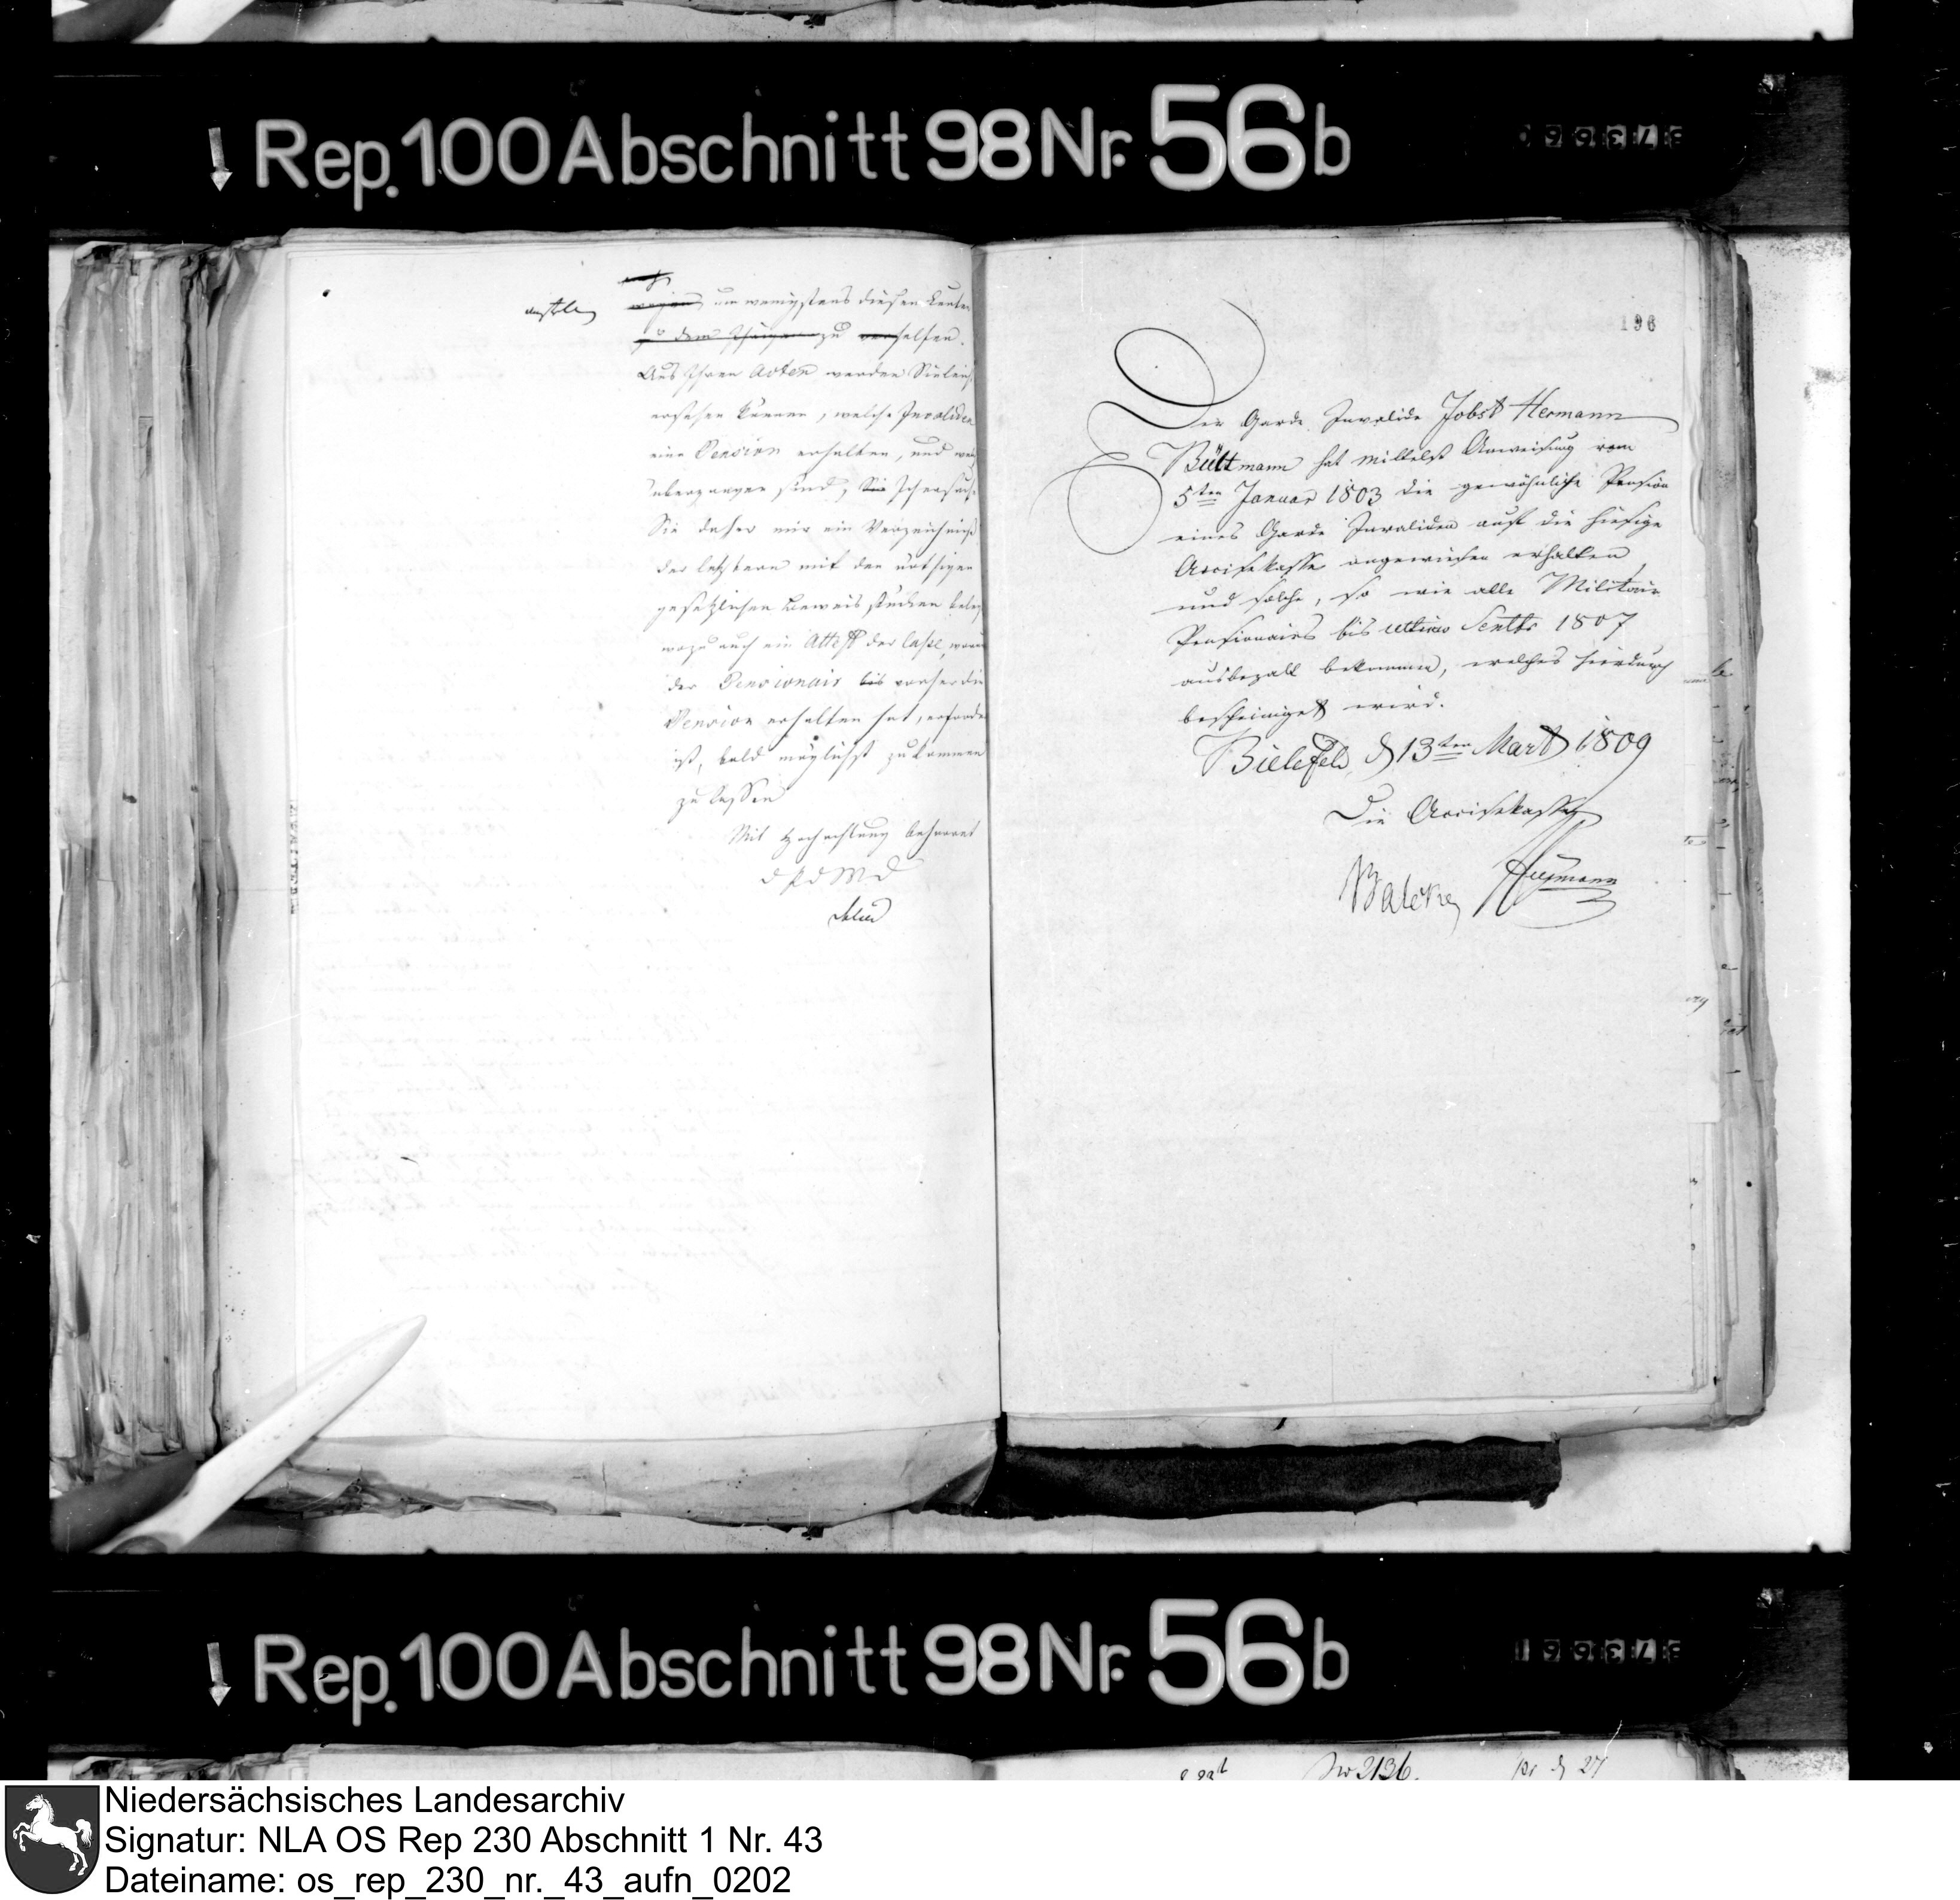 Rep. 100 Abschnitt 98 Nr. 56b
um wenigstens diesen Leuten
zu helfen.
Aus Ihren Acten werden Sie leicht
ersehen können, welche Invaliden
eine Pension erhalten, und wenn
übergangen sind, Ich ersuche
Sie daher mir ein Verzeichniß
der letztern mit den nöthigen
gesetzlichen Beweisstücken beleg
wozu auch ein Attest der Casse, woraus
der Pensionair bis vorher die
Pension erhalten hat, erforder
ist, bald möglichst zukommen
zu lassen
Mit Hochachtung beharret
d P d M D
196
Der Garde Invalide Jobst Hermann
Bültmann hat mittelst Anweisung vom
5ten Januar 1803 die gewöhnliche Pension
eines Garde Invaliden auf die hiesige
Accisekasse angewiesen erhalten,
und solche, so wie alle Militair
Pensionairs bis ultimo Septbr 1807
ausbezalt bekommen, welches hierdurch
bescheiniget wird.
Bielefeld, d 13ten Mart 1809
Die Accisekasse
Rep. 100 Abschnitt 98 Nr. 56b
No 2136. pr d 27
Niedersächsisches Landesarchiv
Signatur: NLA OS Rep 230 Abschnitt 1 Nr. 43
Dateiname: os_rep_230_nr._43_aufn_0202